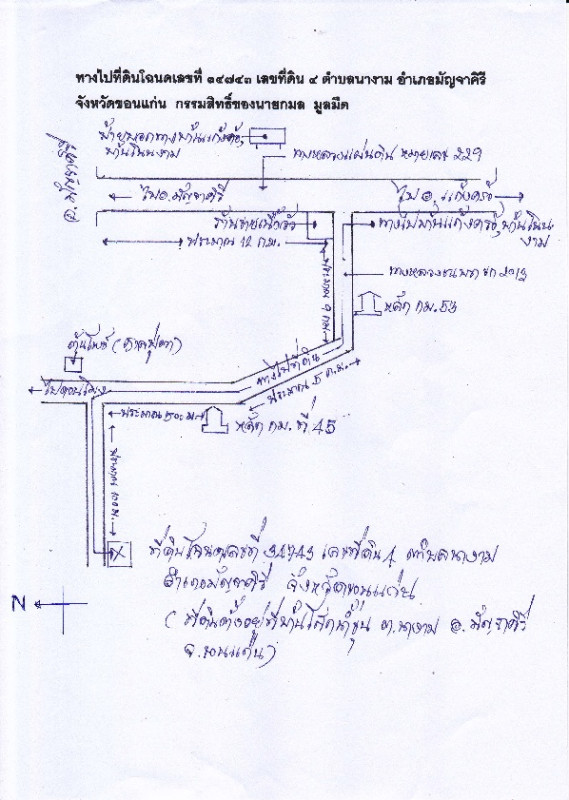 ทางไปที่ดินโฉนดเลขที่ ๑๔๗๔๓ เลขที่ดิน ๔ ตำบลนางาม อำเภอมัญจาคิรี
จังหวัดขอนแก่น กรรมสิทธิ์ของนายกมล มูลมืด
ป้ายบอกทางบ้านแก้งคร้อ,
บ้านโนนงาม
ทางหลวงแผ่นดิน หมายเลข 229
อ. มัญจาคีรี
ไป อ. มัญจาคีรี
ไป อ. แก้งคร้อ
ร้านขายเนื้อวัว
ประมาณ 12 ก.ม.
ทางหลวงชนบท
หลัก กม. 53
ทางไปที่ดิน
ประมาณ 5 ก.ม.
ประมาณ
หลัก กม. ที่ 45
ประมาณ
N
ที่ดินโฉนดเลขที่ 14743 เลขที่ดิน 4 ตำบลนางาม
อำเภอมัญจาคีรี จังหวัดขอนแก่น
(ที่ดินตั้งอยู่ที่บ้าน ต.นางาม อ. มัญจาคีรี
จ. ขอนแก่น)